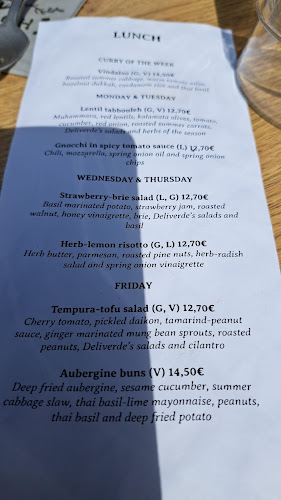 LUNCH
CURRY OF THE WEEK
Vindaloo (G, V) 14,50€
Roasted summer cabbage, warm tomato salsa,
hazelnut dukkah, cardamom rice and thai basil
MONDAY & TUESDAY
Lentil tabbouleh (G, V) 12,70€
Muhammara, red lentils, kalamata olives, tomato,
cucumber, red onion, roasted summer carrots,
Deliverde's salads and herbs of the season
Gnocchi in spicy tomato sauce (L) 12,70€
Chili, mozzarella, spring onion oil and spring onion
chips
WEDNESDAY & THURSDAY
Strawberry-brie salad (L, G) 12,70€
Basil marinated potato, strawberry jam, roasted
walnut, honey vinaigrette, brie, Deliverde's salads and
basil
Herb-lemon risotto (G, L) 12,70€
Herb butter, parmesan, roasted pine nuts, herb-radish
salad and spring onion vinaigrette
FRIDAY
Tempura-tofu salad (G, V) 12,70€
Cherry tomato, pickled daikon, tamarind-peanut
sauce, ginger marinated mung bean sprouts, roasted
peanuts, Deliverde's salads and cilantro
Aubergine buns (V) 14,50€
Deep fried aubergine, sesame cucumber, summer
cabbage slaw, thai basil-lime mayonnaise, peanuts,
thai basil and deep fried potato